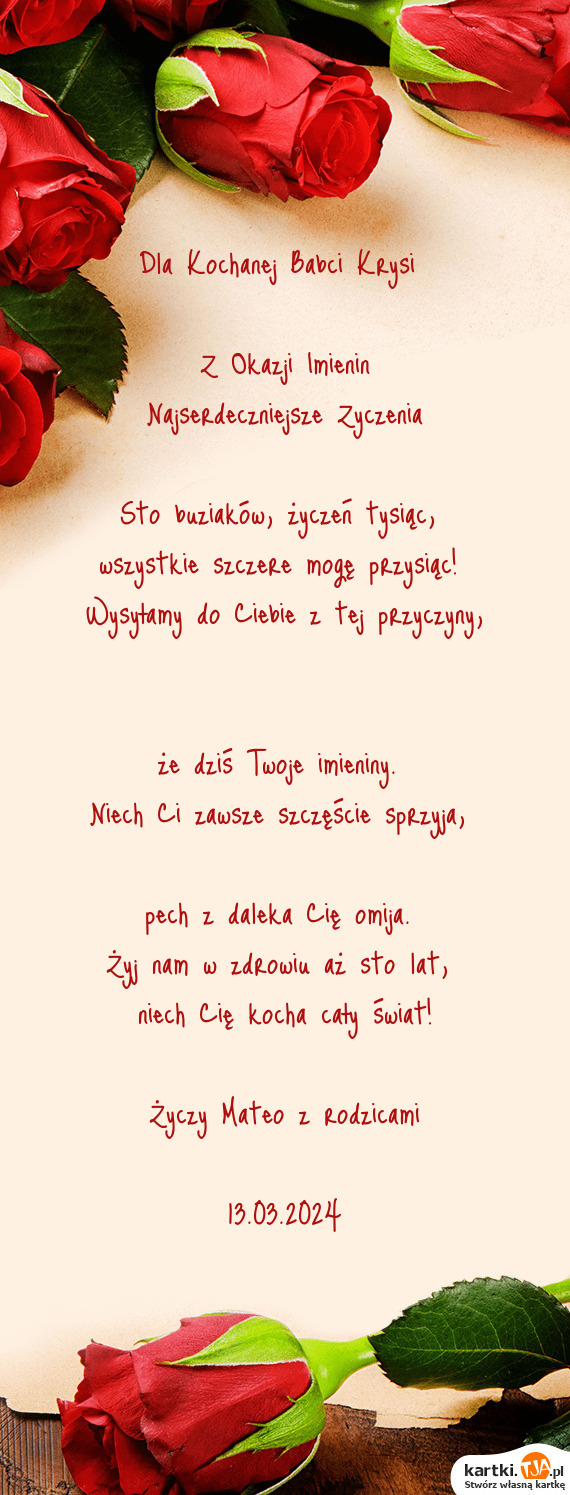 Dla Kochanej Babci Krysi
Z Okazji Imienin
Najserdeczniejsze Życzenia
Sto buziaków, życzeń tysiąc,
wszystkie szczere mogę przysiąc!
Wysyłamy do Ciebie z tej przyczyny,
że dziś Twoje imieniny.
Niech Ci zawsze szczęście sprzyja,
pech z daleka Cię omija.
Żyj nam w zdrowiu aż sto lat,
niech Cię kocha cały świat!
Życzy Mateo z rodzicami
13.03.2024
kartki.TJA.pl
Stwórz własną kartkę